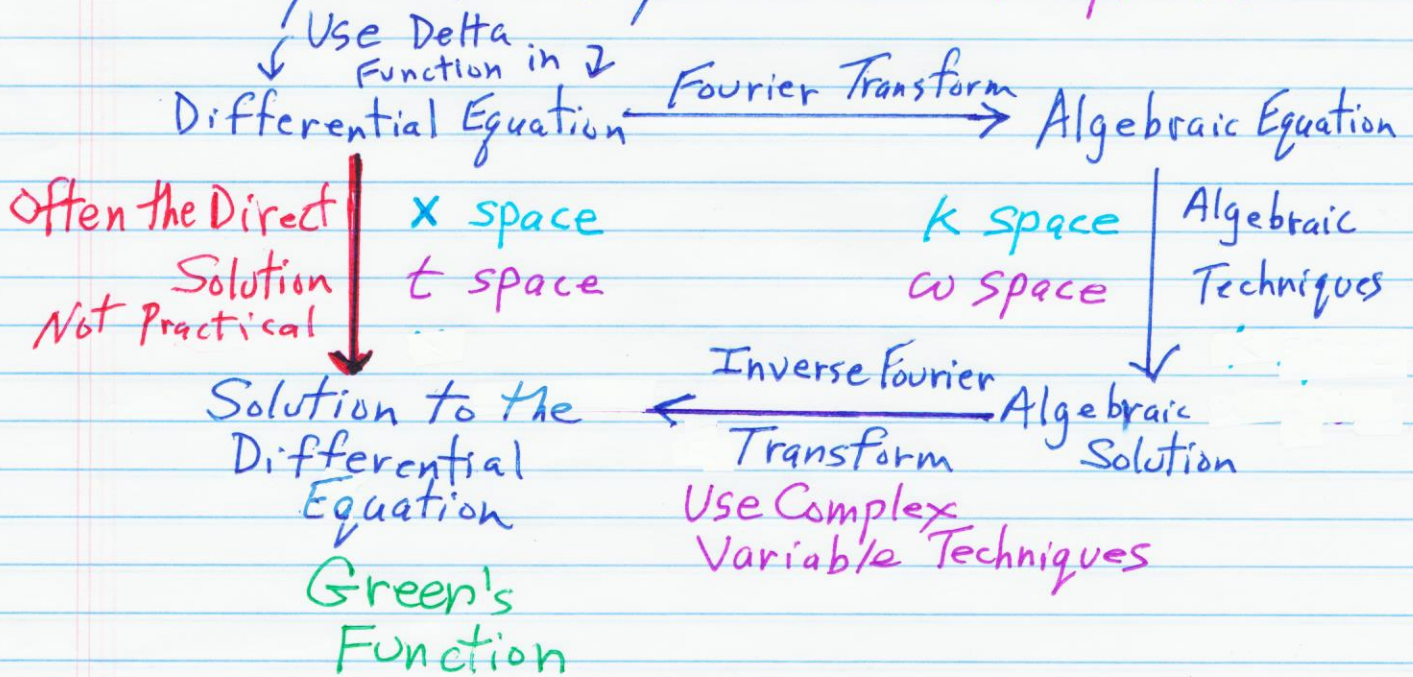 Use Delta
Function in
Differential Equation
Fourier Transform
Algebraic Equation
Often the Direct
Solution
Not Practical
x space
t space
k space
ω space
Algebraic
Techniques
Solution to the
Differential
Equation
Inverse Fourier
Transform
Algebraic
Solution
Use Complex
Variable Techniques
Green's
Function